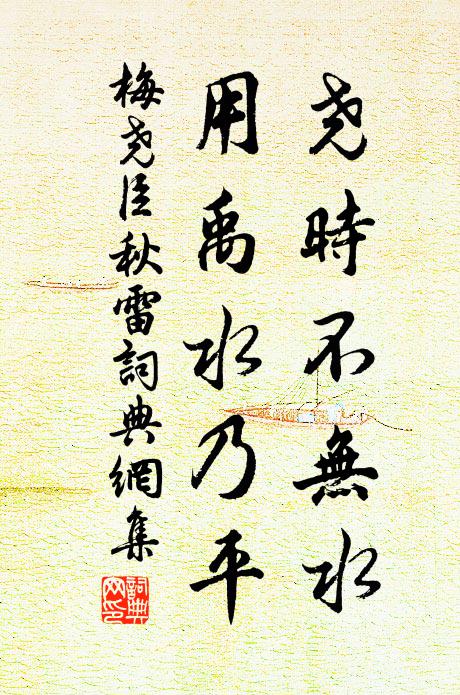 尧時不無水
用禹水乃平
梅尧臣秋雷詞典網集
詞典網印